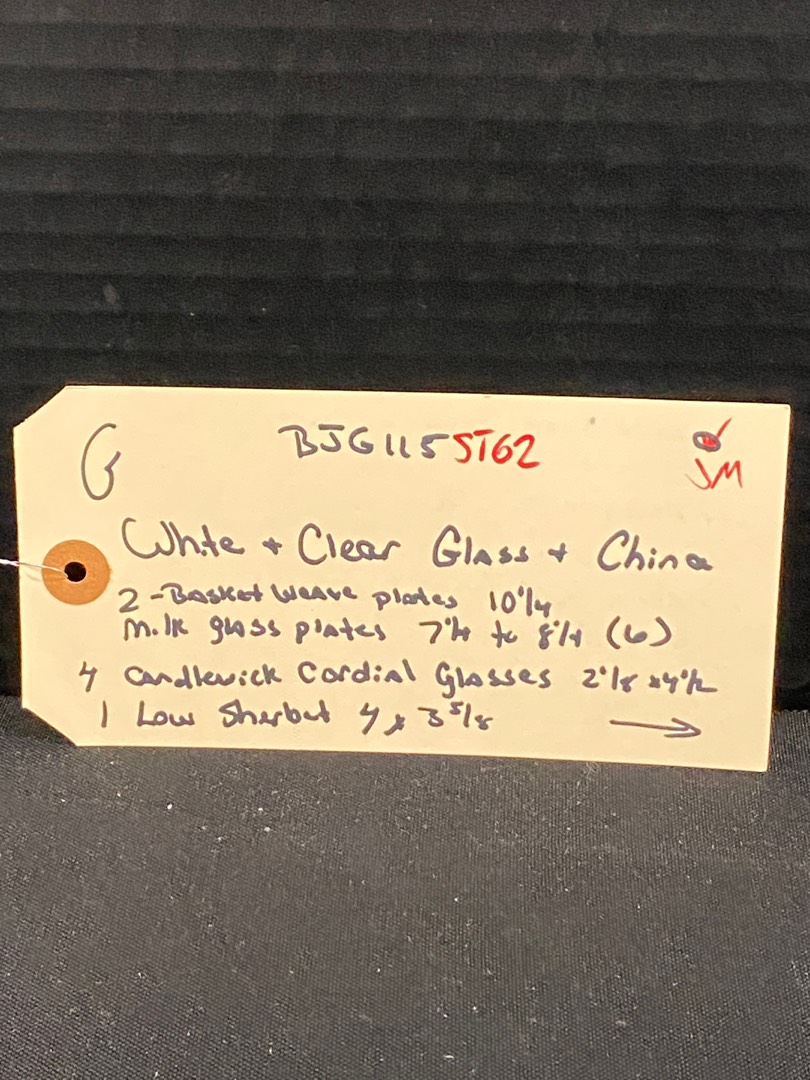 G BJG115 ST62
JM
White + Clear Glass + China
2 - Basket Weave plates 10 1/4
Milk glass plates 7 1/4 to 8 1/4 (6)
4 Candlewick Cordial Glasses 2 1/8 x 4 1/2
1 Low Sherbet 4 x 3 5/8 →